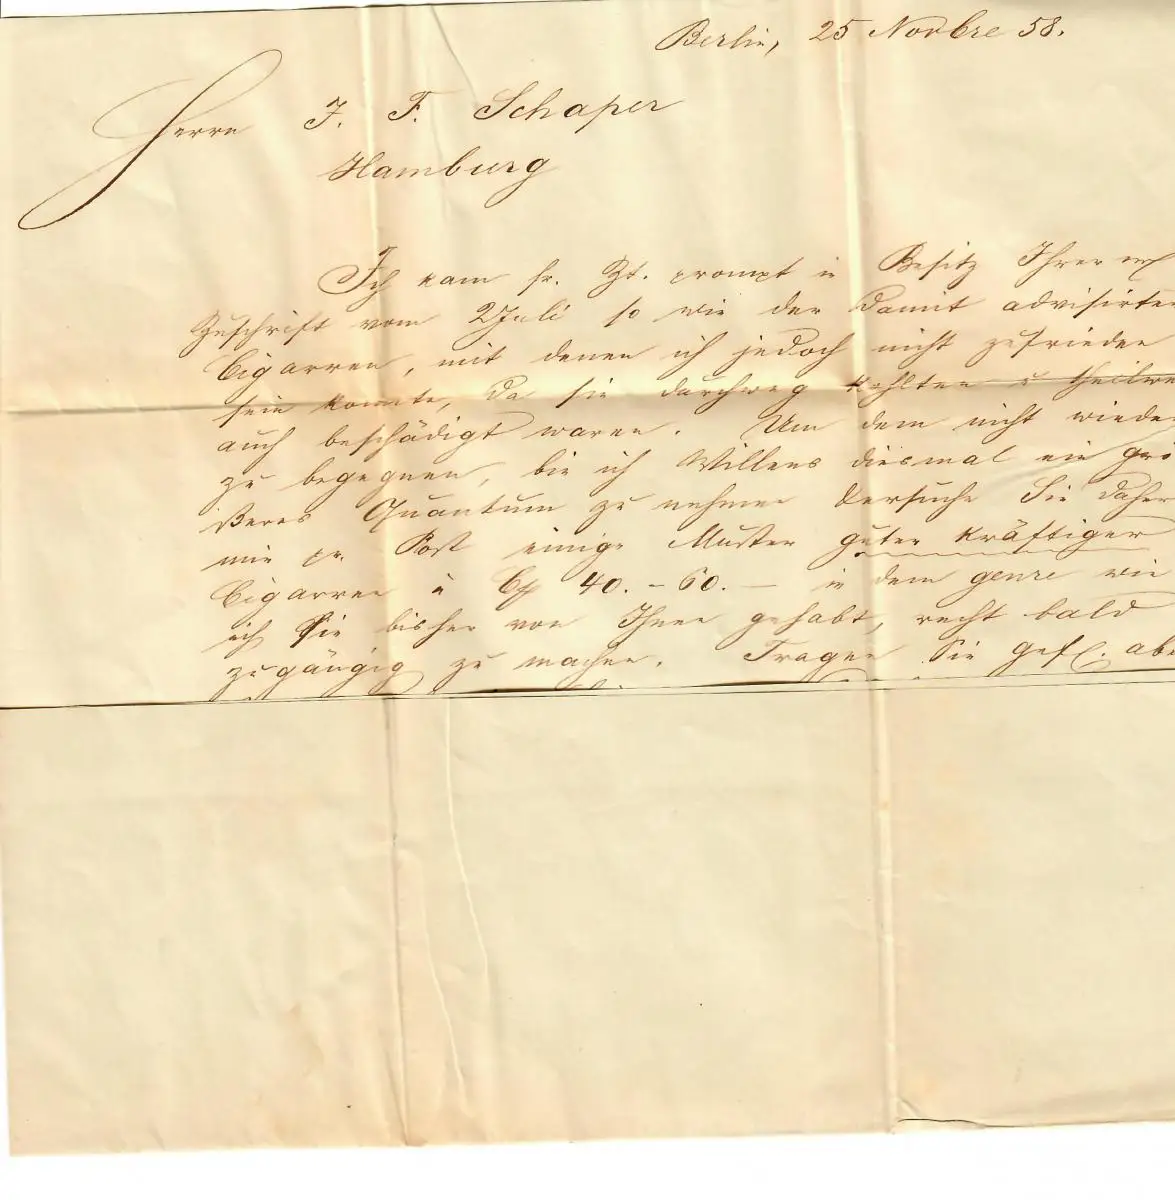 Berlin, 25 Novbre 58.
Herrn J. F. Schaper
Hamburg
Ich kam sr. Zt. prompt in Besitz Ihrer
Zuschrift vom 2 Juli so wie der damit advisirten
Cigarren, mit denen ich jedoch nicht zufrieden
sein konnte, da sie durchweg kohlten u theilwe
auch beschädigt waren. Um dem nicht wieder
zu begegnen, bin ich Willens diesmal ein grö
ßeres Quantum zu nehmen & ersuche Sie daher
mir pr. Post einige Muster guter kräftiger
Cigarren à 40. – 60. – in dem genre wie
ich sie bisher von Ihnen gehabt, recht bald
zugängig zu machen. Tragen Sie gefl. abe